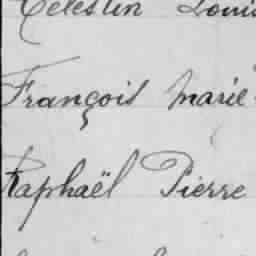 Célestin Louis
François Marie
Raphaël Pierre